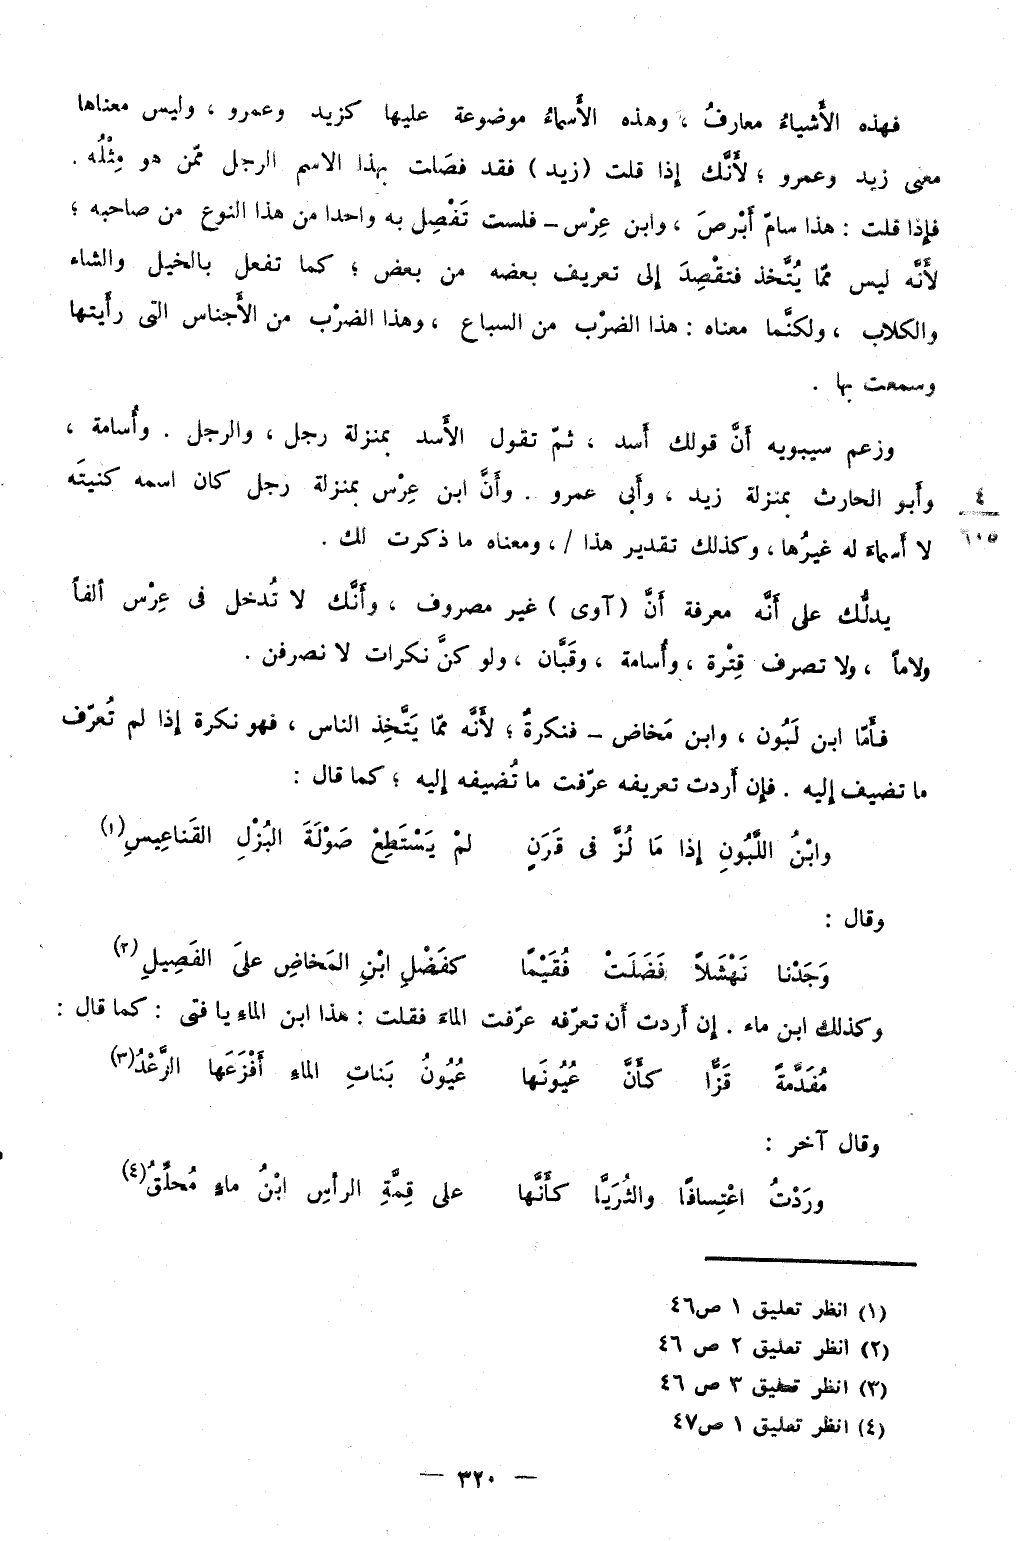 فهذه الأَشياءُ معارفُ ، وهذه الأَسماءُ موضوعة عليها كزيد وعمرو ، وليس معناها
معنى زيد وعمرو ؛ لأَنَّك إذا قلت (زيد) فقد فصَلت بهذا الاسم الرجل ممّن هو مِثْلُه .
فإذا قلت : هذا سامّ أَبْرصَ ، وابن عِرْس – فلست تَفْصِل به واحدا من هذا النوع من صاحبه ؛
لأَنَّه ليس ممّا يُتَّخذ فتقْصِدَ إلى تعريف بعضه من بعض ؛ كما تفعل بالخيل والشاء
والكلاب ، ولكنَّما معناه : هذا الضرْب من السباع ، وهذا الضرْب من الأَجناس التى رأَيتها
وسمعت بها .
وزعم سيبويه أَنَّ قولك أَسد ، ثمّ تقول الأَسد بمنزلة رجل ، والرجل . وأُسامة ،
وأَبو الحارث بمنزلة زيد ، وأَبى عمرو . وأَنَّ ابن عِرْس بمنزلة رجل كان اسمه كنيتَه
٤
٦٠٥
لا أَسماءَ له غيرُها ، وكذلك تقدير هذا / ، ومعناه ما ذكرت لك .
يدلُّك على أَنَّه معرفة أَنَّ (آوى) غير مصروف ، وأَنَّك لا تُدخل فى عِرْس ألفاً
ولاماً ، ولا تصرف قِتْرة ، وأُسامة ، وقَبَّان ، ولو كنَّ نكرات لا نصرفن .
فأَمّا ابن لَبُون ، وابن مَخاض – فنكرةٌ ؛ لأَنَّه ممّا يَتَّخِذ الناس ، فهو نكرة إذا لم تُعرّف
ما تضيف إليه . فإن أَردت تعريفه عرّفت ما تُضيفه إليه ؛ كما قال :
وابْنُ اللَّبُونِ إذا مَا لُزَّ فى قَرَنٍ لمْ يَسْتَطِعْ صَوْلَةَ البُزْلِ القَناعِيسِ(١)
وقال :
وَجَدْنا نَهْشَلاً فَضَلَتْ فُقَيْمًا كفَضْلِ ابْنِ المَخاضِ علىَ الفَصِيلِ(٢)
وكذلك ابن ماء . إن أَردت أَن تعرّفه عرّفت الماءَ فقلت : هذا ابن الماءِ يا فتى : كما قال :
مُفَدَّمةً قَزًّا كأَنَّ عُيُونَها عُيُونُ بَناتِ الماءِ أَفْزَعَها الرَّعْدُ(٣)
وقال آخر :
ورَدْتُ اعْتِسافًا والثُرَيَّا كأَنَّها على قِمَّةِ الرأسِ ابْنُ ماءٍ مُحلِّقُ(٤)
(١) انظر تعليق ١ ص٤٦
(٢) انظر تعليق ٢ ص ٤٦
(٣) انظر تعليق ٣ ص ٤٦
(٤) انظر تعليق ١ ص٤٧
— ٣٢٠ —